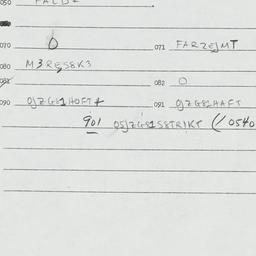 050 FALD+
070 O 071 FARZEJMT
080 M3RES8K3
081 082 O
090 OJZG81HOFT+ 091 OJZG81HAFT
901 05JZG81S8TRIKT (/ 0540